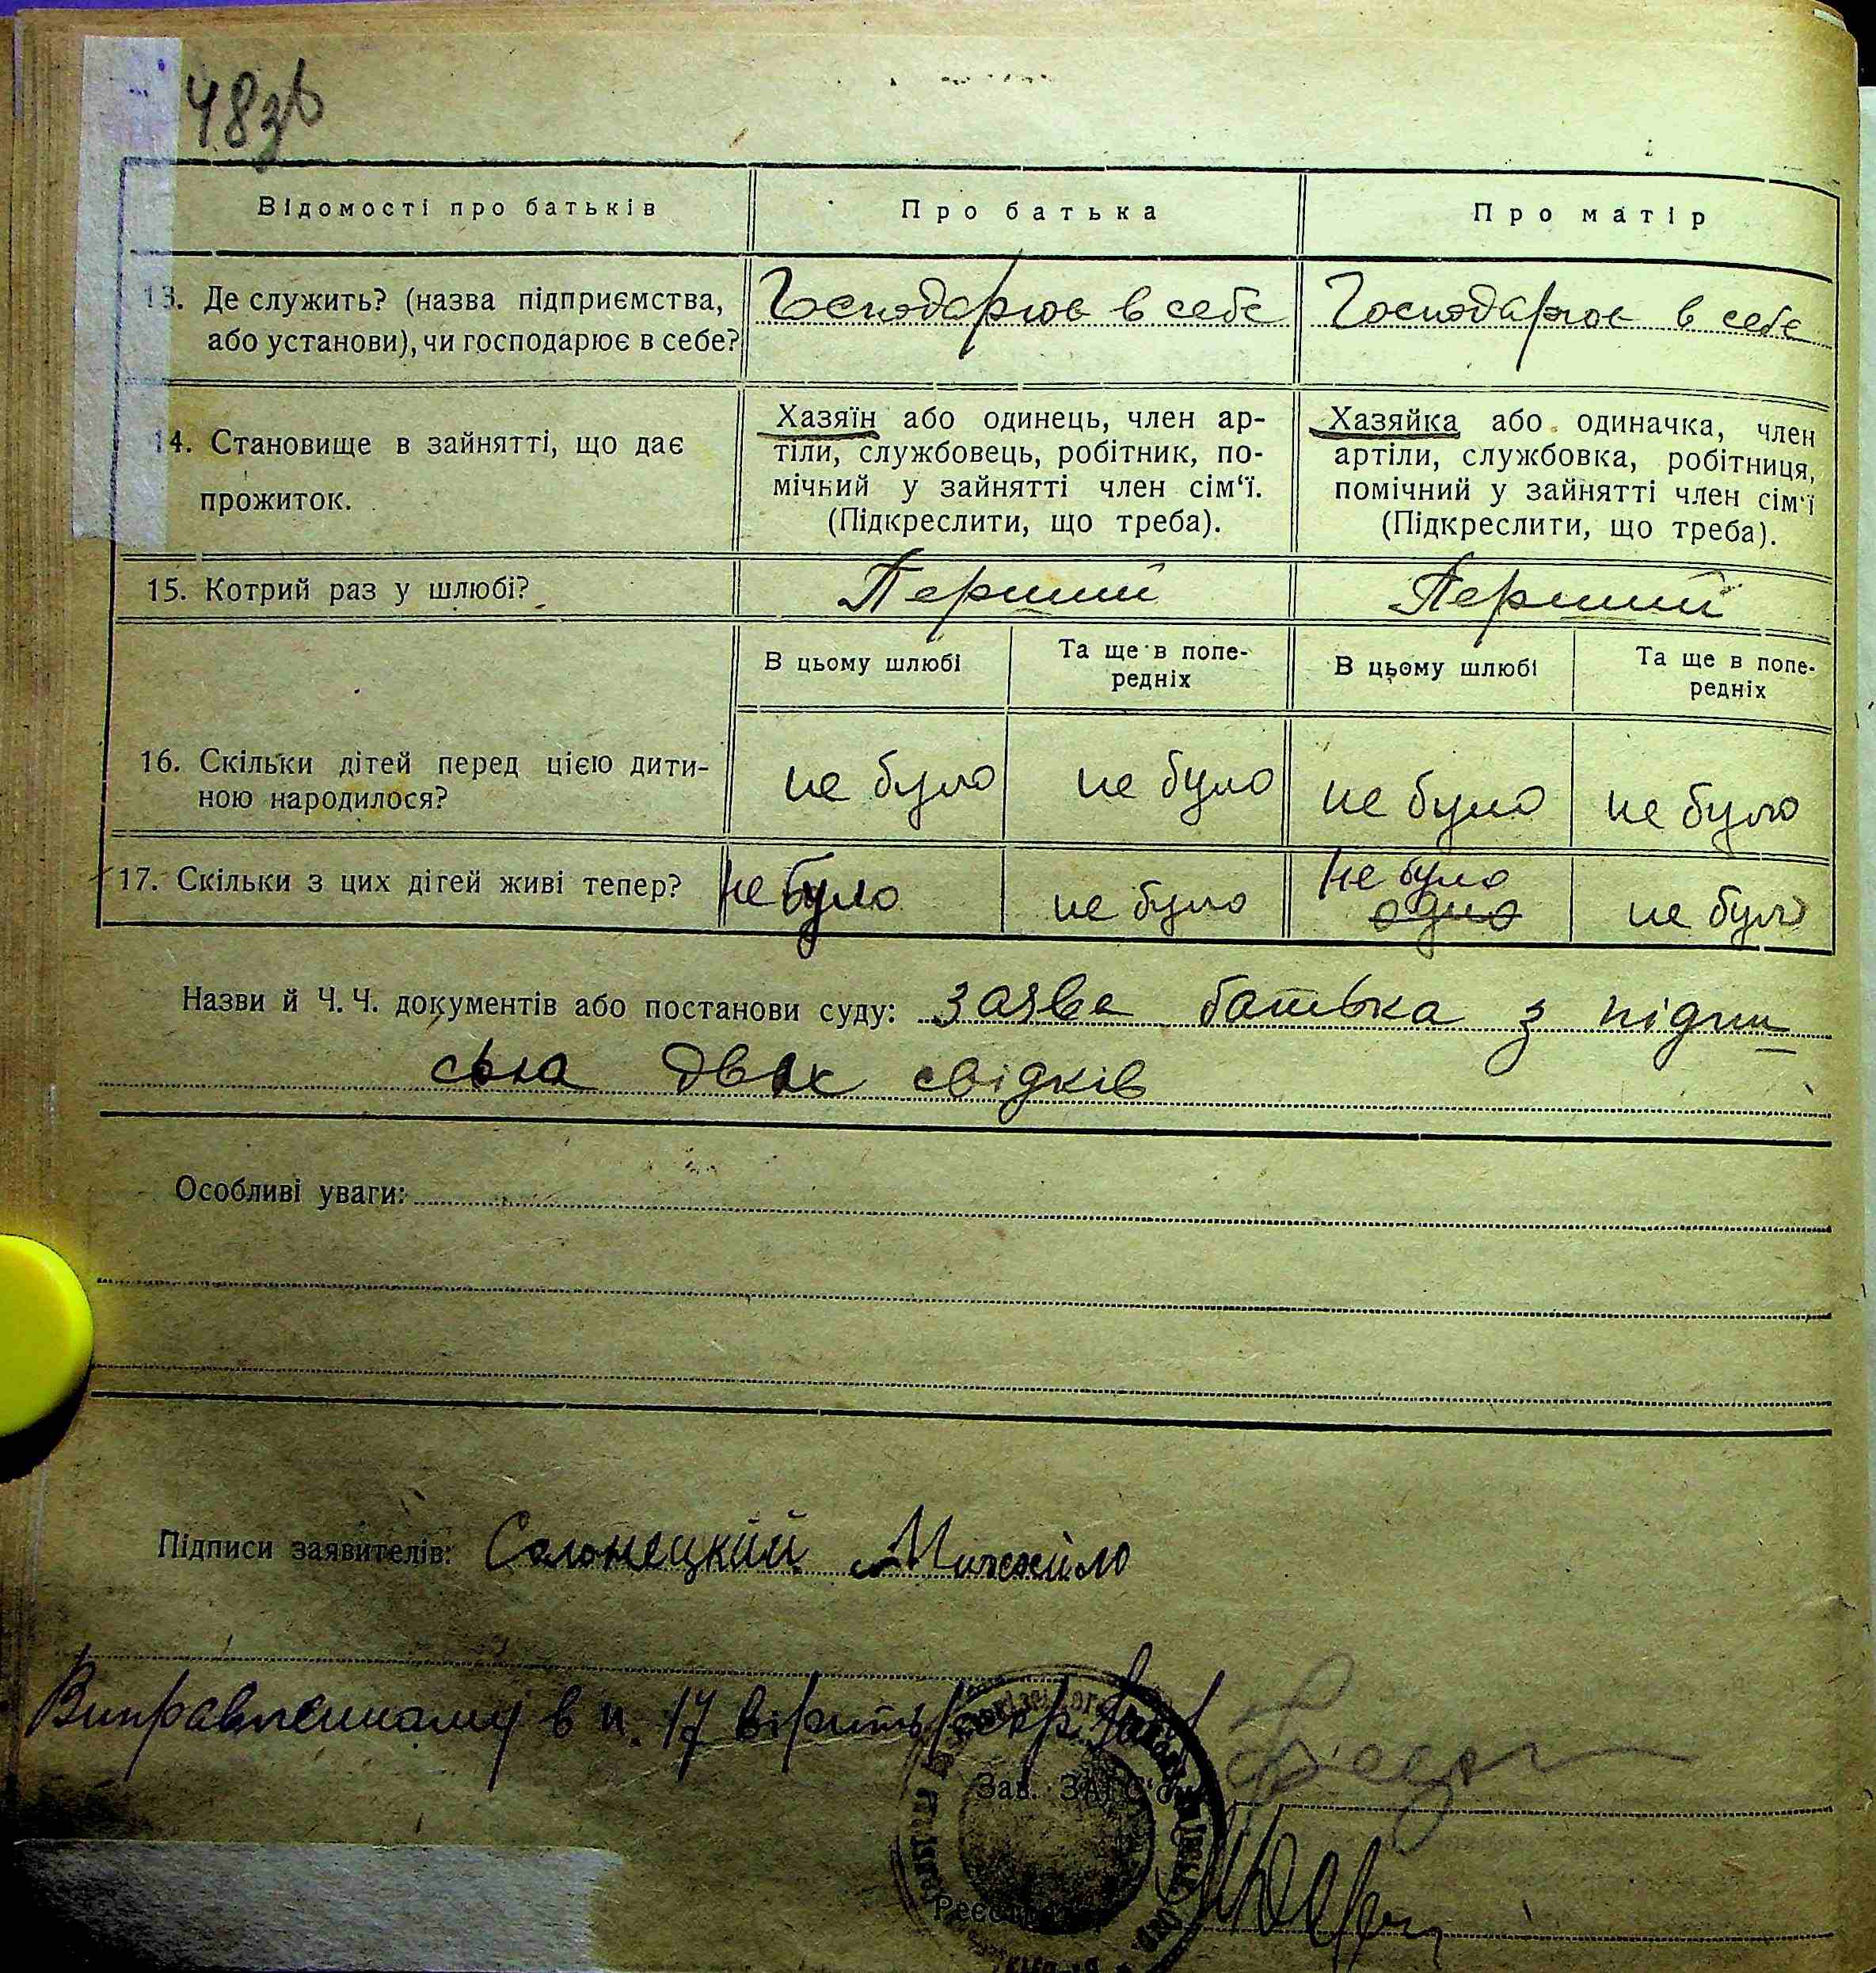 48зв
Відомості про батьків
Про батька
Про матір
13. Де служить? (назва підприємства,
або установи), чи господарює в себе?
Господарює в себе
Господарює в себе
14. Становище в зайнятті, що дає
прожиток.
Хазяїн або одинець, член ар-
тіли, службовець, робітник, по-
мічний у зайнятті член сім‘ї.
(Підкреслити, що треба).
Хазяйка або одиначка, член
артіли, службовка, робітниця,
помічний у зайнятті член сім‘ї
(Підкреслити, що треба).
15. Котрий раз у шлюбі?
Перший
Перший
В цьому шлюбі
Та ще в попе-
редніх
В цьому шлюбі
Та ще в попе-
редніх
16. Скільки дітей перед цією дити-
ною народилося?
не було
не було
не було
не було
17. Скільки з цих дітей живі тепер?
не було
не було
не було
одно
не було
Назви й Ч. Ч. документів або постанови суду: заява батька з підпи
сьма двох свідків
Особливі уваги:
Підписи заявителів: Солонецкий Михайло
Виправленному в п. 17 вірить секр.
Зав. ЗАГС‘ом